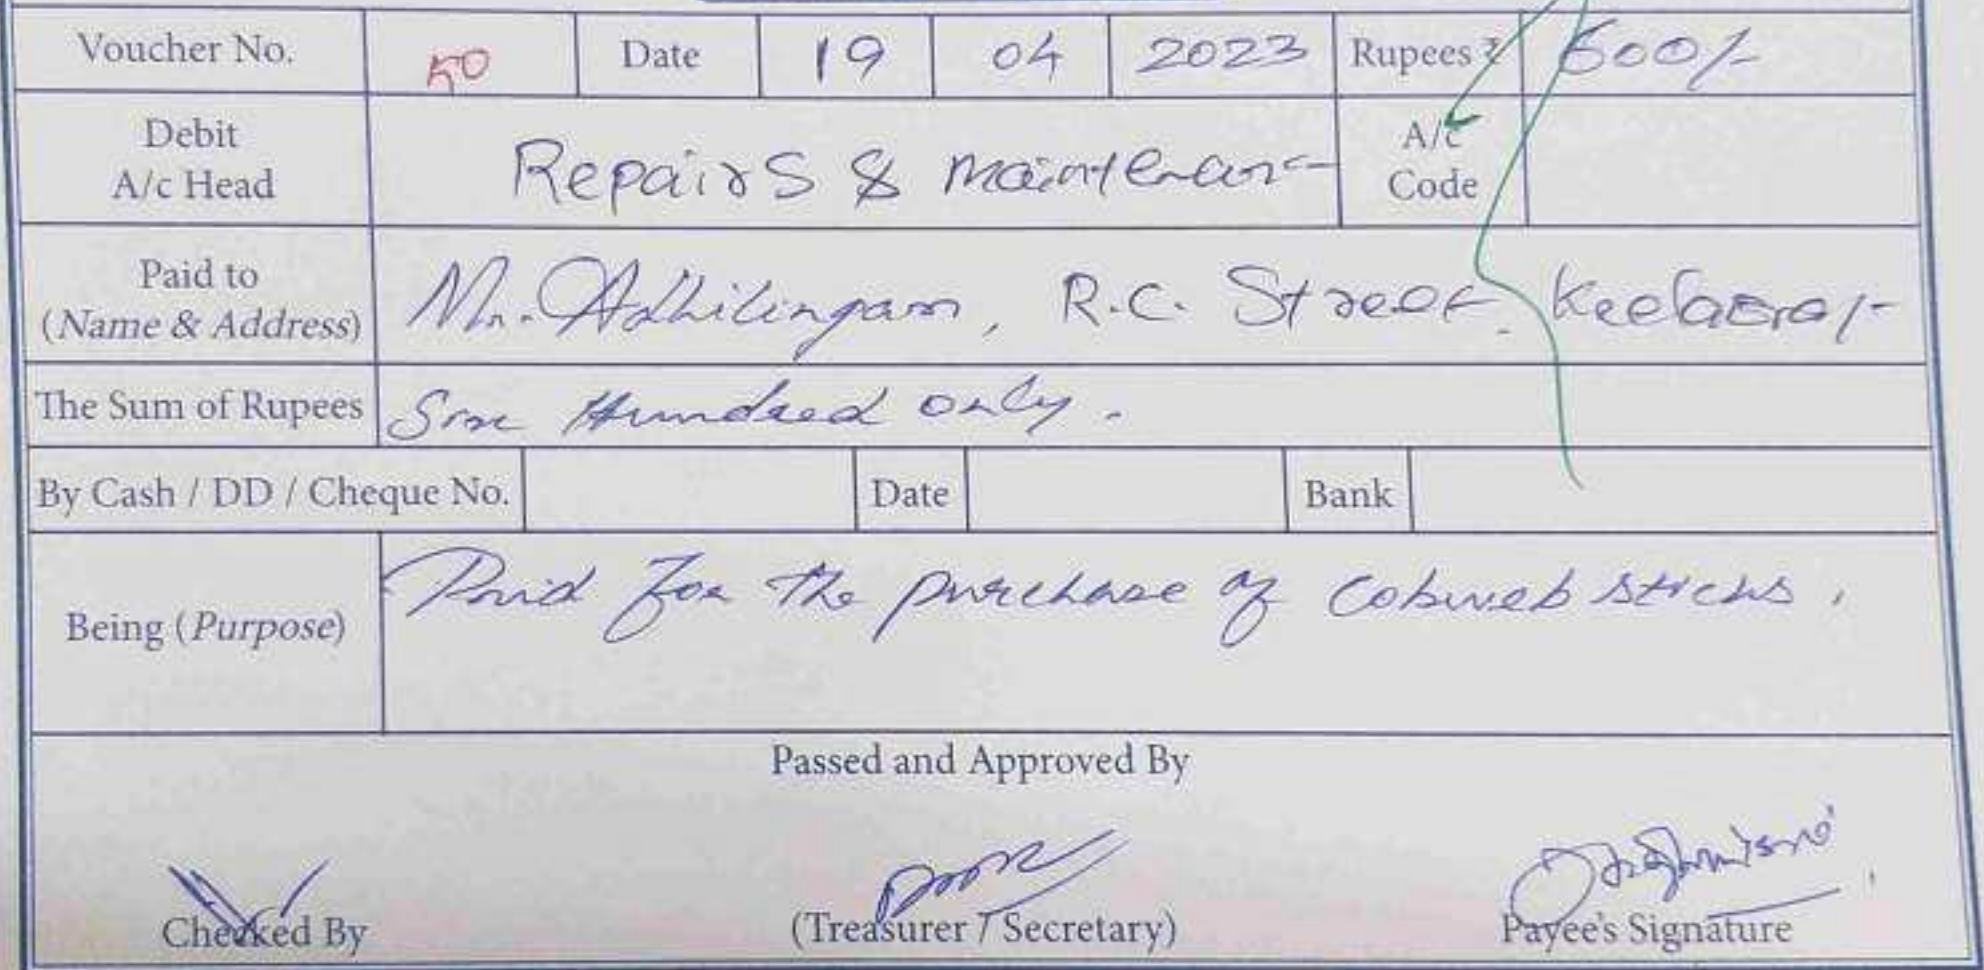 Voucher No. 50 Date 19 04 2023 Rupees ₹ 600/-
Debit A/c Head Repairs & maintenanc A/c Code
Paid to (Name & Address) Mr. Adhilingam, R.C. Street,
The Sum of Rupees Six Hundred only.
By Cash / DD / Cheque No. Date Bank
Being (Purpose) Paid for the purchase of cobweb sticks.
Passed and Approved By
Checked By (Treasurer / Secretary) Payee's Signature